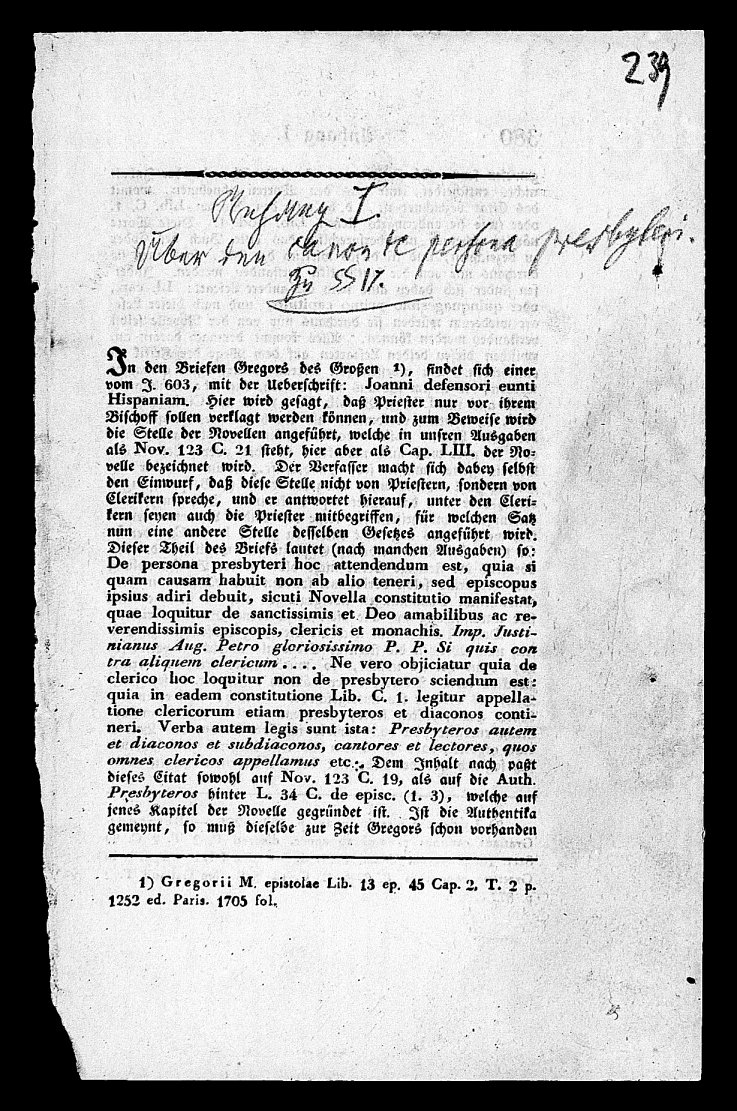 239
Anhang I.
Über den canon de persona presbyteri.
Zu §§ 17.
In den Briefen Gregors des Großen 1), findet sich einer
vom J. 603, mit der Ueberschrift: Joanni defensori eunti
Hispaniam. Hier wird gesagt, daß Priester nur vor ihrem
Bischoff sollen verklagt werden können, und zum Beweise wird
die Stelle der Novellen angeführt, welche in unsren Ausgaben
als Nov. 123 C. 21 steht, hier aber als Cap. LIII. der No=
velle bezeichnet wird. Der Verfasser macht sich dabey selbst
den Einwurf, daß diese Stelle nicht von Priestern, sondern von
Clerikern spreche, und er antwortet hierauf, unter den Cleri=
kern seyen auch die Priester mitbegriffen, für welchen Satz
nun eine andere Stelle desselben Gesetzes angeführt wird.
Dieser Theil des Briefs lautet (nach manchen Ausgaben) so:
De persona presbyteri hoc attendendum est, quia si
quam causam habuit non ab alio teneri, sed episcopus
ipsius adiri debuit, sicuti Novella constitutio manifestat,
quae loquitur de sanctissimis et Deo amabilibus ac re-
verendissimis episcopis, clericis et monachis. Imp. Justi-
nianus Aug. Petro gloriosissimo P. P. Si quis con
tra aliquem clericum .... Ne vero objiciatur quia de
clerico hoc loquitur non de presbytero sciendum est:
quia in eadem constitutione Lib. C. 1. legitur appella-
tione clericorum etiam presbyteros et diaconos conti-
neri. Verba autem legis sunt ista: Presbyteros autem
et diaconos et subdiaconos, cantores et lectores, quos
omnes clericos appellamus etc. Dem Inhalt nach paßt
dieses Citat sowohl auf Nov. 123 C. 19, als auf die Auth.
Presbyteros hinter L. 34 C. de episc. (1. 3), welche auf
jenes Kapitel der Novelle gegründet ist. Ist die Authentika
gemeynt, so muß dieselbe zur Zeit Gregors schon vorhanden
1) Gregorii M. epistolae Lib. 13 ep. 45 Cap. 2. T. 2 p.
1252 ed. Paris. 1705 fol.